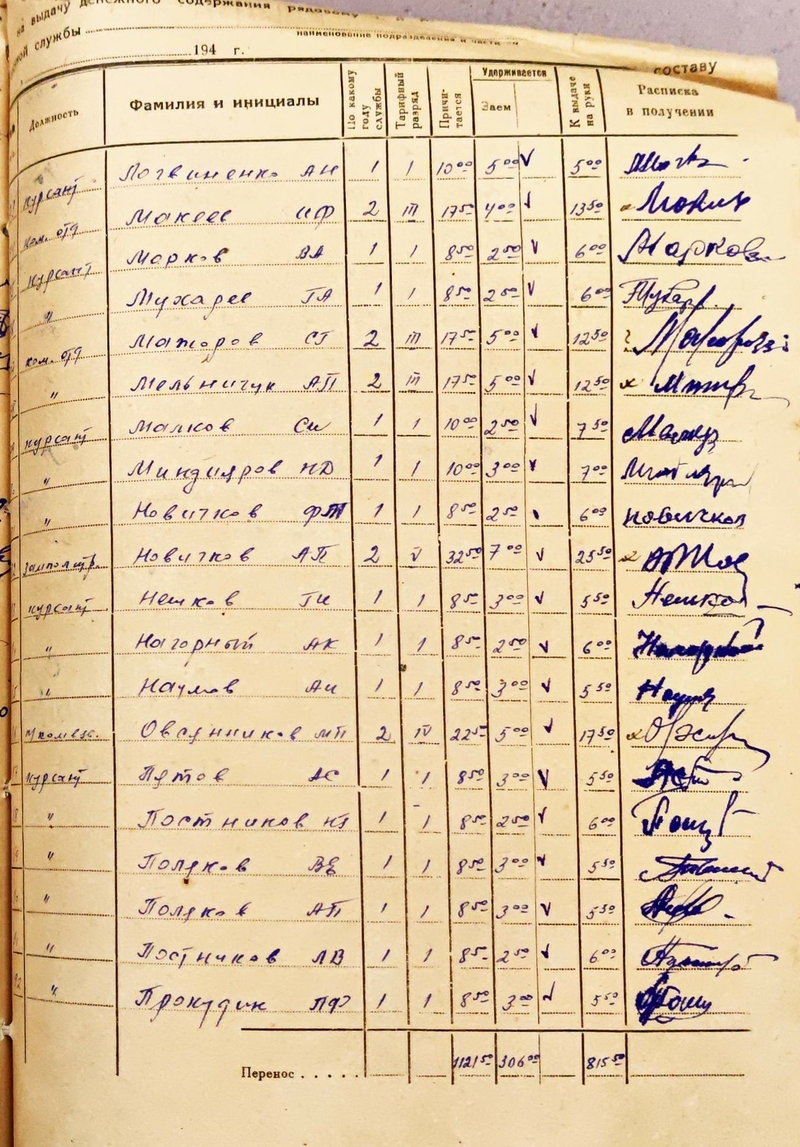 на выдачу денежного содержания рядовому
ной службы
наименование подразделения и части
194 г.
составу
Должность
Фамилия и инициалы
По какому году службы
Тарифный разряд
Причитается
Удерживается
Заем
К выдаче на руки
Расписка в получении
Курсант Логвиненко АН 1 1 10 00 5 00 V 5 00
ком. отд Макеев ИФ 2 III 17 50 4 00 V 13 50
Курсант Марков ВА 1 1 8 50 2 50 V 6 00 Марков
" Мухарев ГА 1 1 8 50 2 50 V 6 00
ком. отд Мажоров СГ 2 III 17 50 5 00 V 12 50
" Мельничук АП 2 III 17 50 5 00 V 12 50
курсант Малков Си 1 1 10 00 2 50 V 7 50
" Миндияров НД 1 1 10 00 3 00 V 7 00
" Новичков ФТ 1 1 8 50 2 50 6 00 новичков
Замполитр. Новичков АП 2 V 32 50 7 00 V 25 50
курсант Нешков Ги 1 1 8 50 3 00 V 5 50 Нешков
" Нагорный АК 1 1 8 50 2 50 V 6 00
" Наумов Аи 1 1 8 50 3 00 V 5 50
Овсянников МП 2 IV 22 50 5 00 V 17 50
Курсант Пятов АС 1 1 8 50 3 00 V 5 50
" Постников НГ 1 1 8 50 2 50 V 6 00
" Поляков ВЕ 1 1 8 50 3 00 V 5 50
" Поляков АП 1 1 8 50 3 00 V 5 50
" Постников ЛВ 1 1 8 50 2 50 V 6 00
" Прокудин ПФ 1 1 8 50 3 00 V 5 50
Перенос . . . . . 1121 50 306 00 815 50